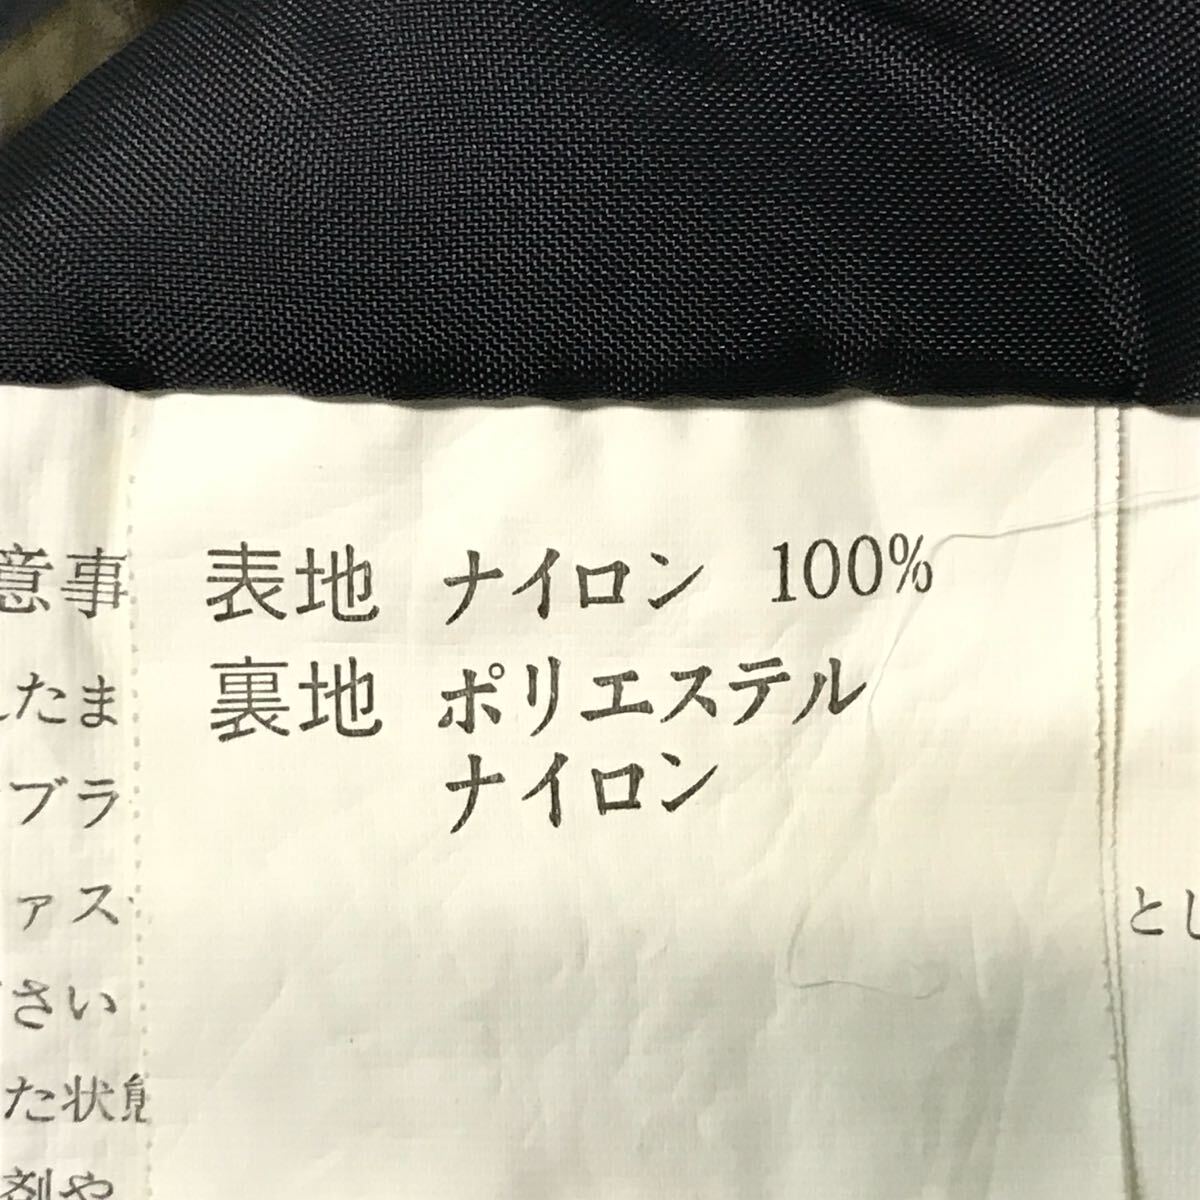 表地 ナイロン 100%
裏地 ポリエステル
ナイロン
意事
たまブラ
ァス
さい
た状態
剤や
とし